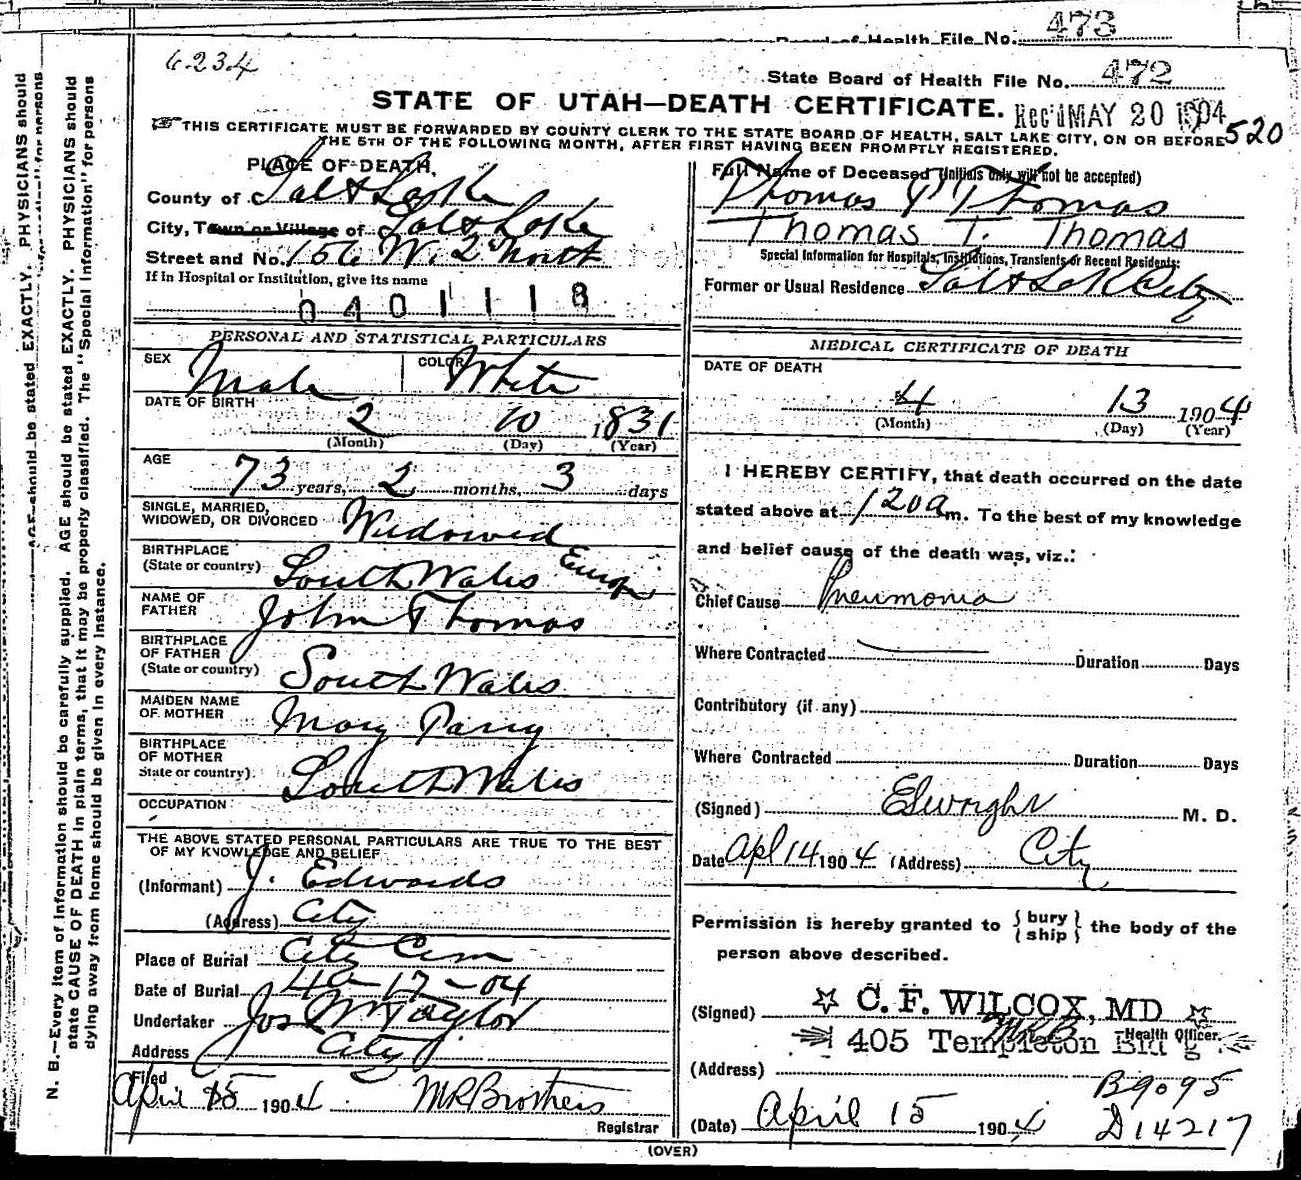 473
State Board of Health File No.
6234
State Board of Health File No. 472
STATE OF UTAH—DEATH CERTIFICATE.
Rec'd MAY 20 1904
520
THIS CERTIFICATE MUST BE FORWARDED BY COUNTY CLERK TO THE STATE BOARD OF HEALTH, SALT LAKE CITY, ON OR BEFORE
THE 5TH OF THE FOLLOWING MONTH, AFTER FIRST HAVING BEEN PROMPTLY REGISTERED.
PLACE OF DEATH.
County of Salt Lake
City, Town or Village of Salt Lake
Street and No. 156 W. 2d North
If in Hospital or Institution, give its name
0401118
Full Name of Deceased (Initials only will not be accepted)
Thomas T Thomas
Thomas T. Thomas
Special Information for Hospitals, Institutions, Transients or Recent Residents:
Former or Usual Residence Salt Lake City
PERSONAL AND STATISTICAL PARTICULARS
SEX Male COLOR White
DATE OF BIRTH
2 10 1831
(Month) (Day) (Year)
AGE
73 years, 2 months, 3 days
SINGLE, MARRIED,
WIDOWED, OR DIVORCED Widowed
BIRTHPLACE
(State or country) South Wales Europe
NAME OF
FATHER John Thomas
BIRTHPLACE
OF FATHER
(State or country) South Wales
MAIDEN NAME
OF MOTHER Mary Parry
BIRTHPLACE
OF MOTHER
State or country) South Wales
OCCUPATION
THE ABOVE STATED PERSONAL PARTICULARS ARE TRUE TO THE BEST
OF MY KNOWLEDGE AND BELIEF
(Informant) J. Edwards
(Address) City
Place of Burial City Cem
Date of Burial 4-17-04
Undertaker Jos Wm Taylor
Address City
Filed
April 15 1904 M R Brothers
Registrar
MEDICAL CERTIFICATE OF DEATH
DATE OF DEATH
4 13 1904
(Month) (Day) (Year)
I HEREBY CERTIFY, that death occurred on the date
stated above at 120 a m. To the best of my knowledge
and belief cause of the death was, viz.:
Chief Cause Pneumonia
Where Contracted Duration Days
Contributory (if any)
Where Contracted Duration Days
(Signed) M. D.
Date Apl 14 1904 (Address) City
Permission is hereby granted to {bury
ship} the body of the
person above described.
(Signed) C. F. WILCOX, MD
MRB Health Officer.
405 Templeton Bld'g
(Address)
B9095
(Date) April 15 1904
D14217
(OVER)
N. B.—Every item of information should be carefully supplied. AGE should be stated EXACTLY. PHYSICIANS should
state CAUSE OF DEATH in plain terms, that it may be properly classified. The "Special Information" for persons
dying away from home should be given in every instance.
AGE should be stated EXACTLY. PHYSICIANS should
for persons